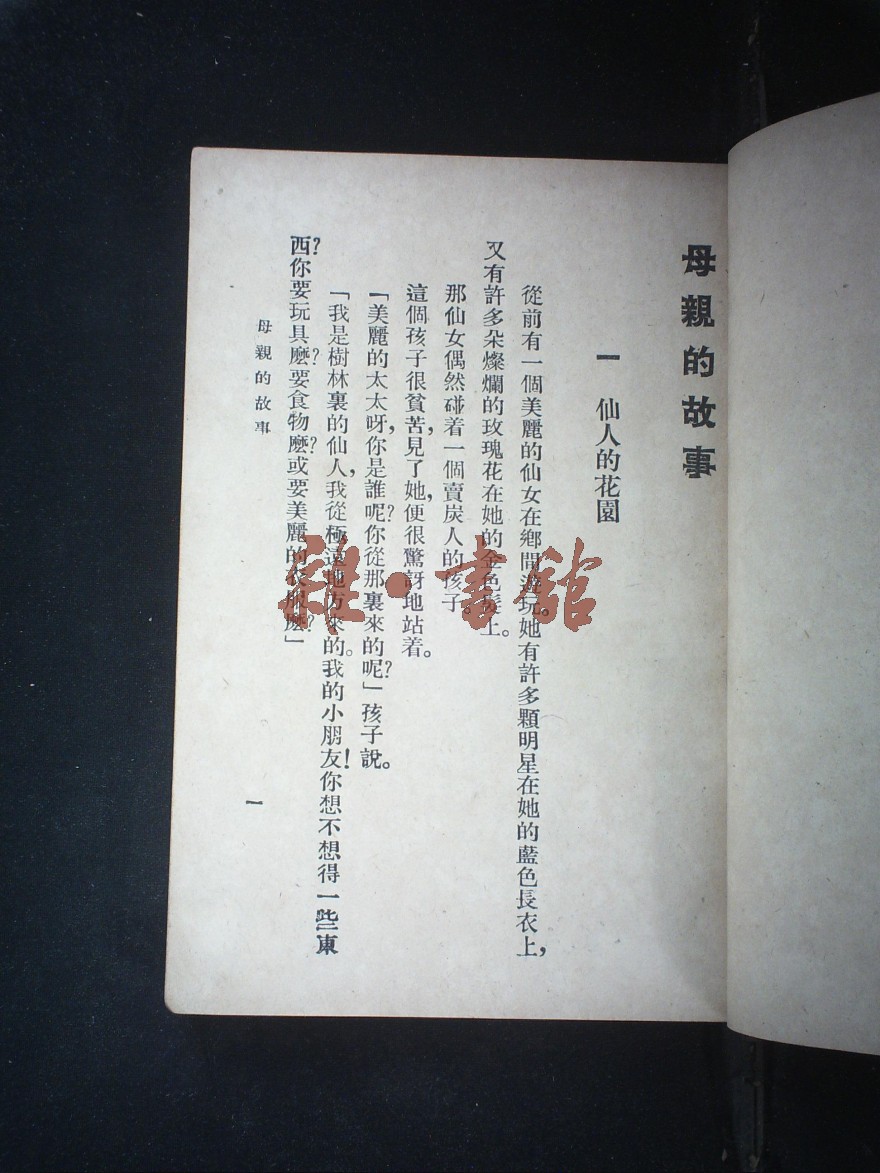 母親的故事
一 仙人的花園
從前有一個美麗的仙女在鄉間遊玩。她有許多顆明星在她的藍色長衣上，
又有許多朵燦爛的玫瑰花在她的金色髮上。
那仙女偶然碰着一個賣炭人的孩子。
這個孩子很貧苦，見了她，便很驚訝地站着。
「美麗的太太呀，你是誰呢？你從那裏來的呢？」孩子說。
「我是樹林裏的仙人，我從極遠地方來的。我的小朋友！你想不想得一些東
西？你要玩具麽？要食物麽？或要美麗的衣服麽？」
母親的故事
一
雜·書館